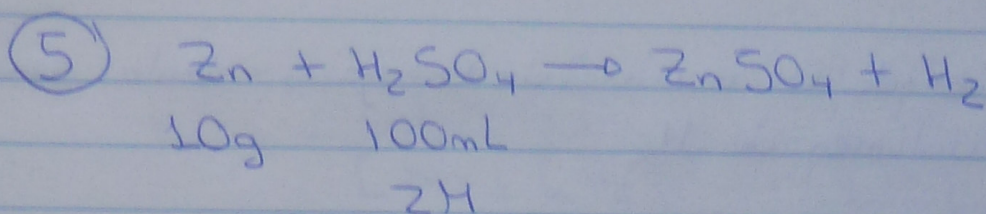 5 Zn + H₂SO₄ → ZnSO₄ + H₂
10g 100mL
2M